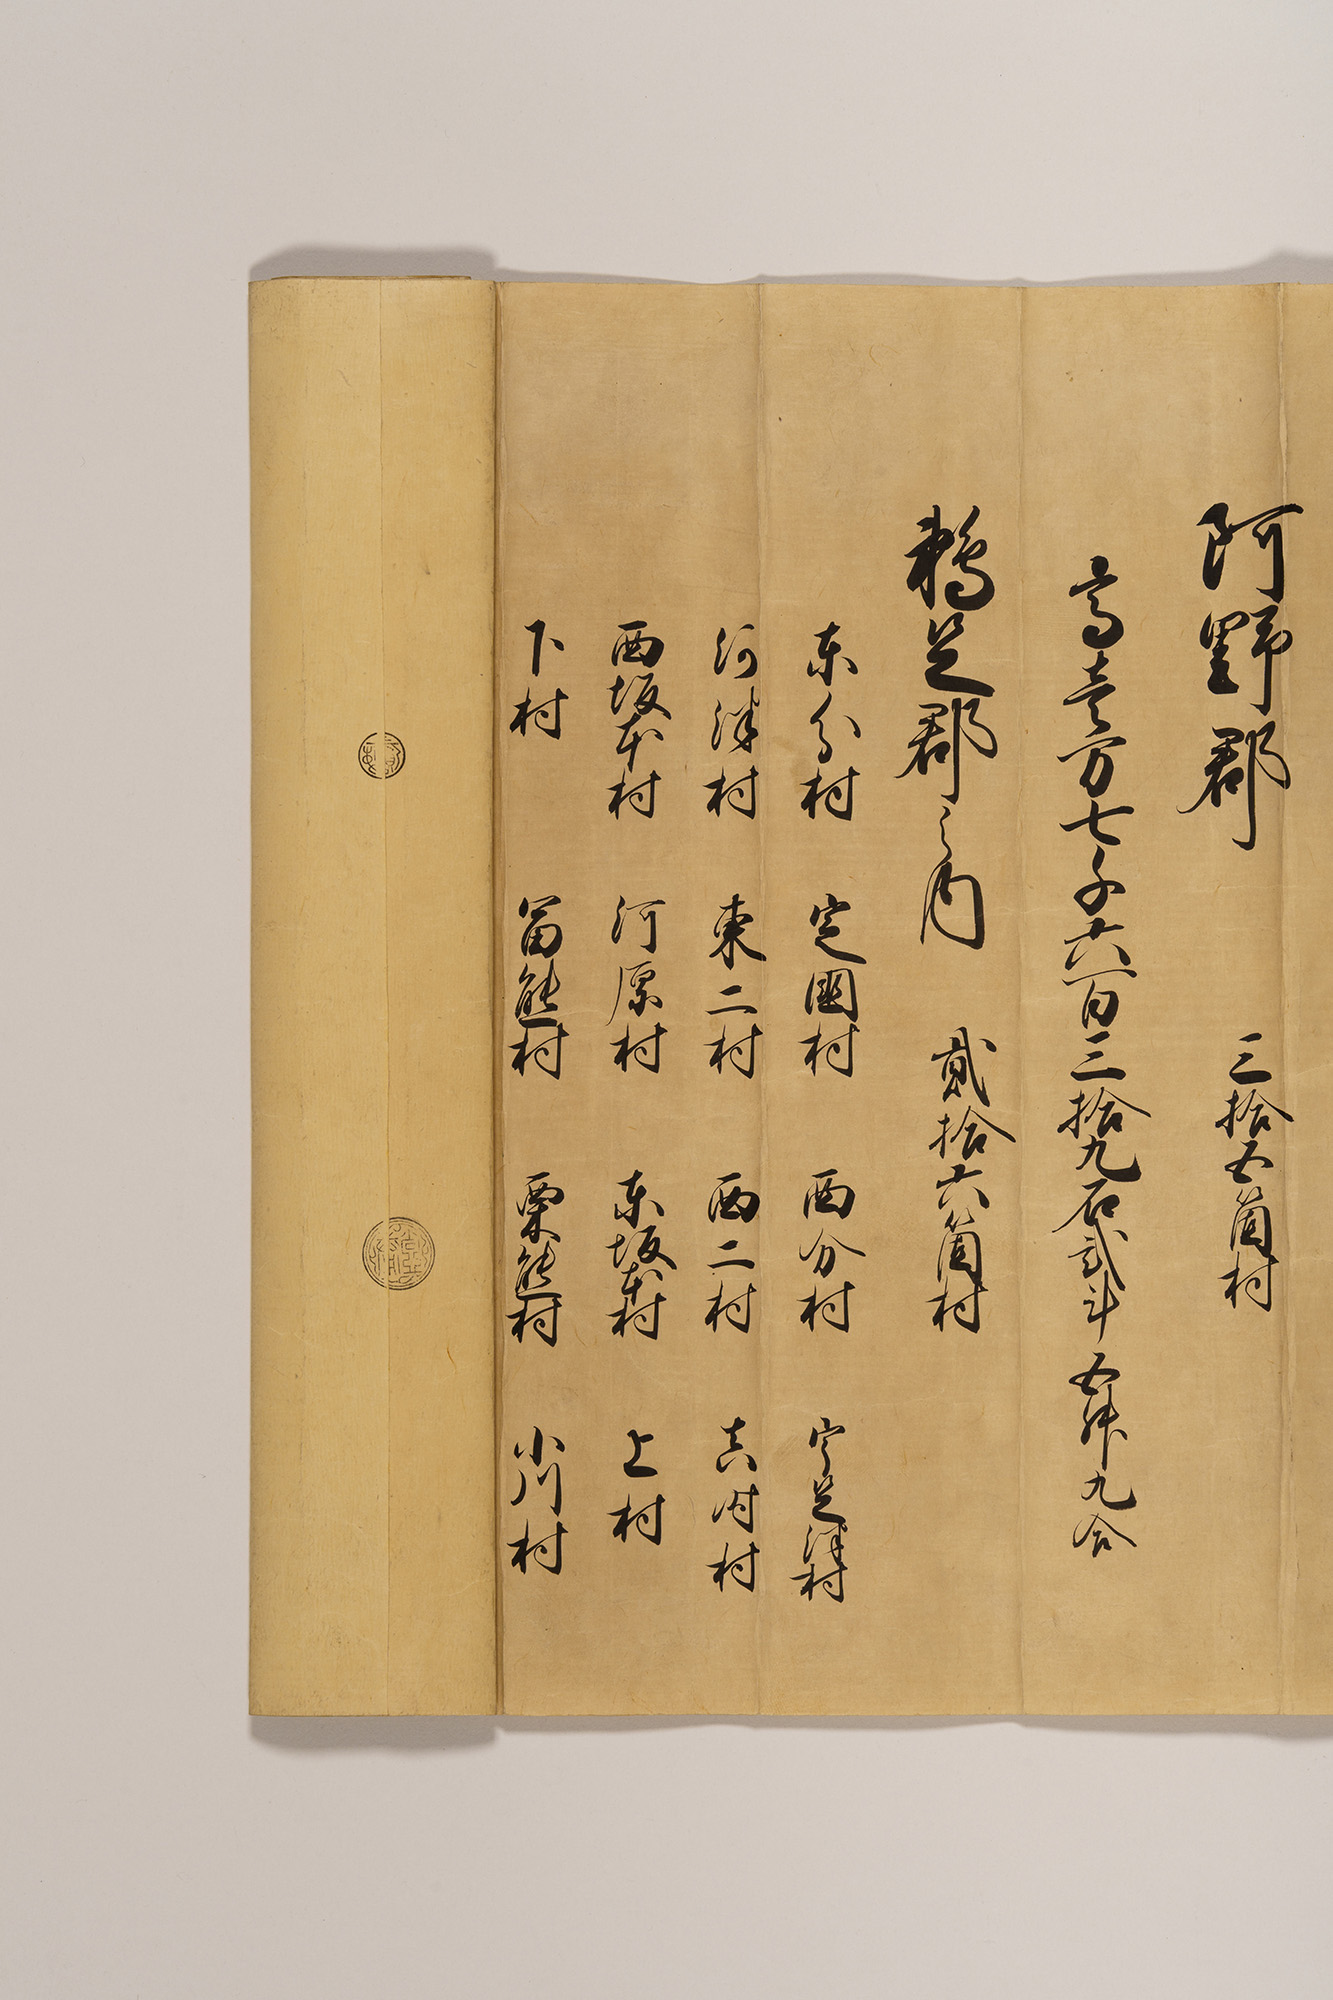 阿野郡　三拾五箇村
高壹万七千六百三拾九石貳斗五升九合
鵜足郡之内　貳拾六箇村
東分村　定圀村　西分村　宇足津村
河津村　東二村　西二村　真時村
西坂本村　河原村　東坂本村　上村
下村　冨熊村　栗熊村　小川村